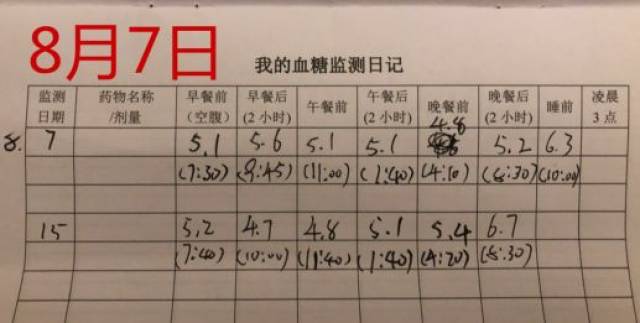 8月7日
我的血糖监测日记
监测日期 药物名称/剂量 早餐前(空腹) 早餐后(2小时) 午餐前 午餐后(2小时) 晚餐前 晚餐后(2小时) 睡前 凌晨3点
4.8
8. 7 5.1 5.6 5.1 5.1 5.2 6.3
(7:30) (9:45) (11:00) (1:40) (4:10) (6:30) (10:00)
15 5.2 4.7 4.8 5.1 5.4 6.7
(7:40) (10:00) (11:40) (1:40) (4:20) (6:30)